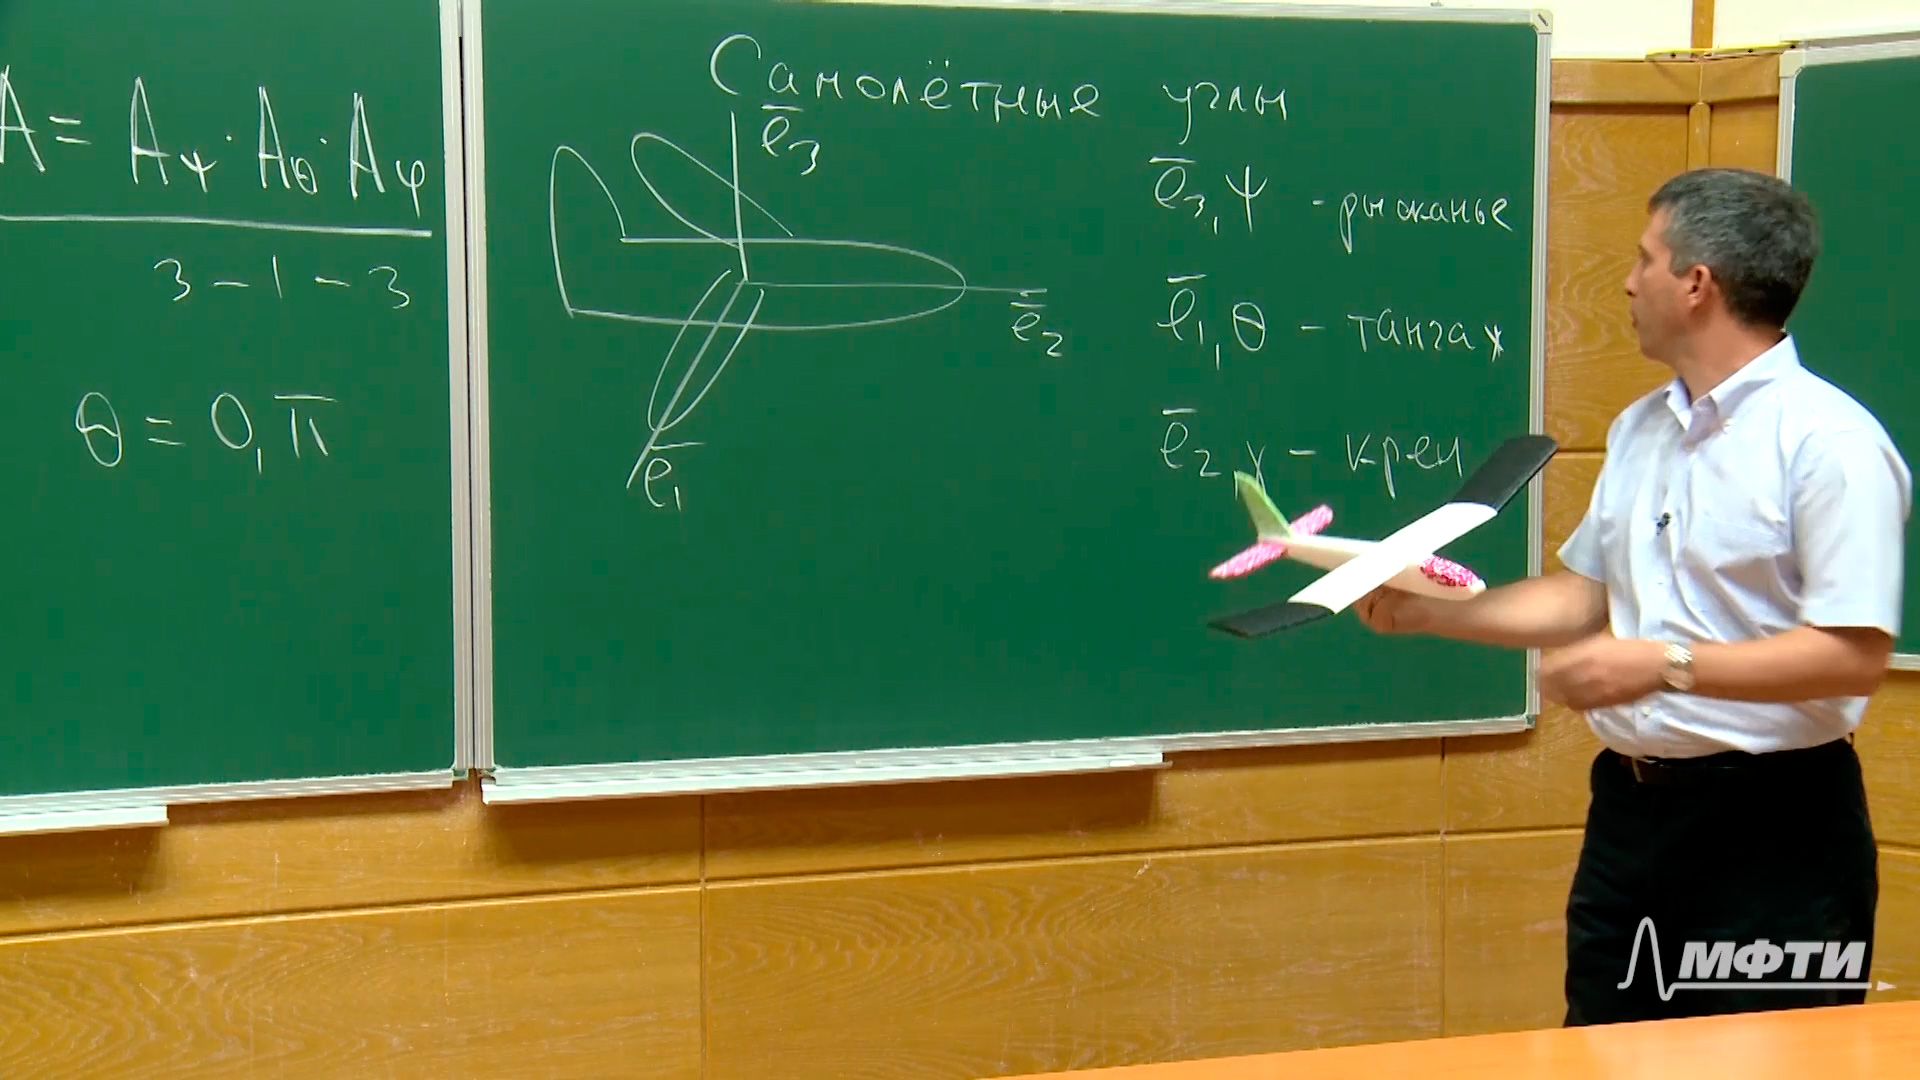 A = Aψ · Aθ · Aφ
3 – 1 – 3
θ = 0, π
Самолётные углы
e̅₃
e̅₂
e̅₁
e̅₃, ψ - рысканье
e̅₁, θ – тангаж
e̅₂, γ – крен
МФТИ